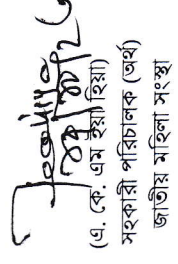 (এ. কে. এম ইয়াহিয়া)
সহকারী পরিচালক (অর্থ)
জাতীয় মহিলা সংস্থা